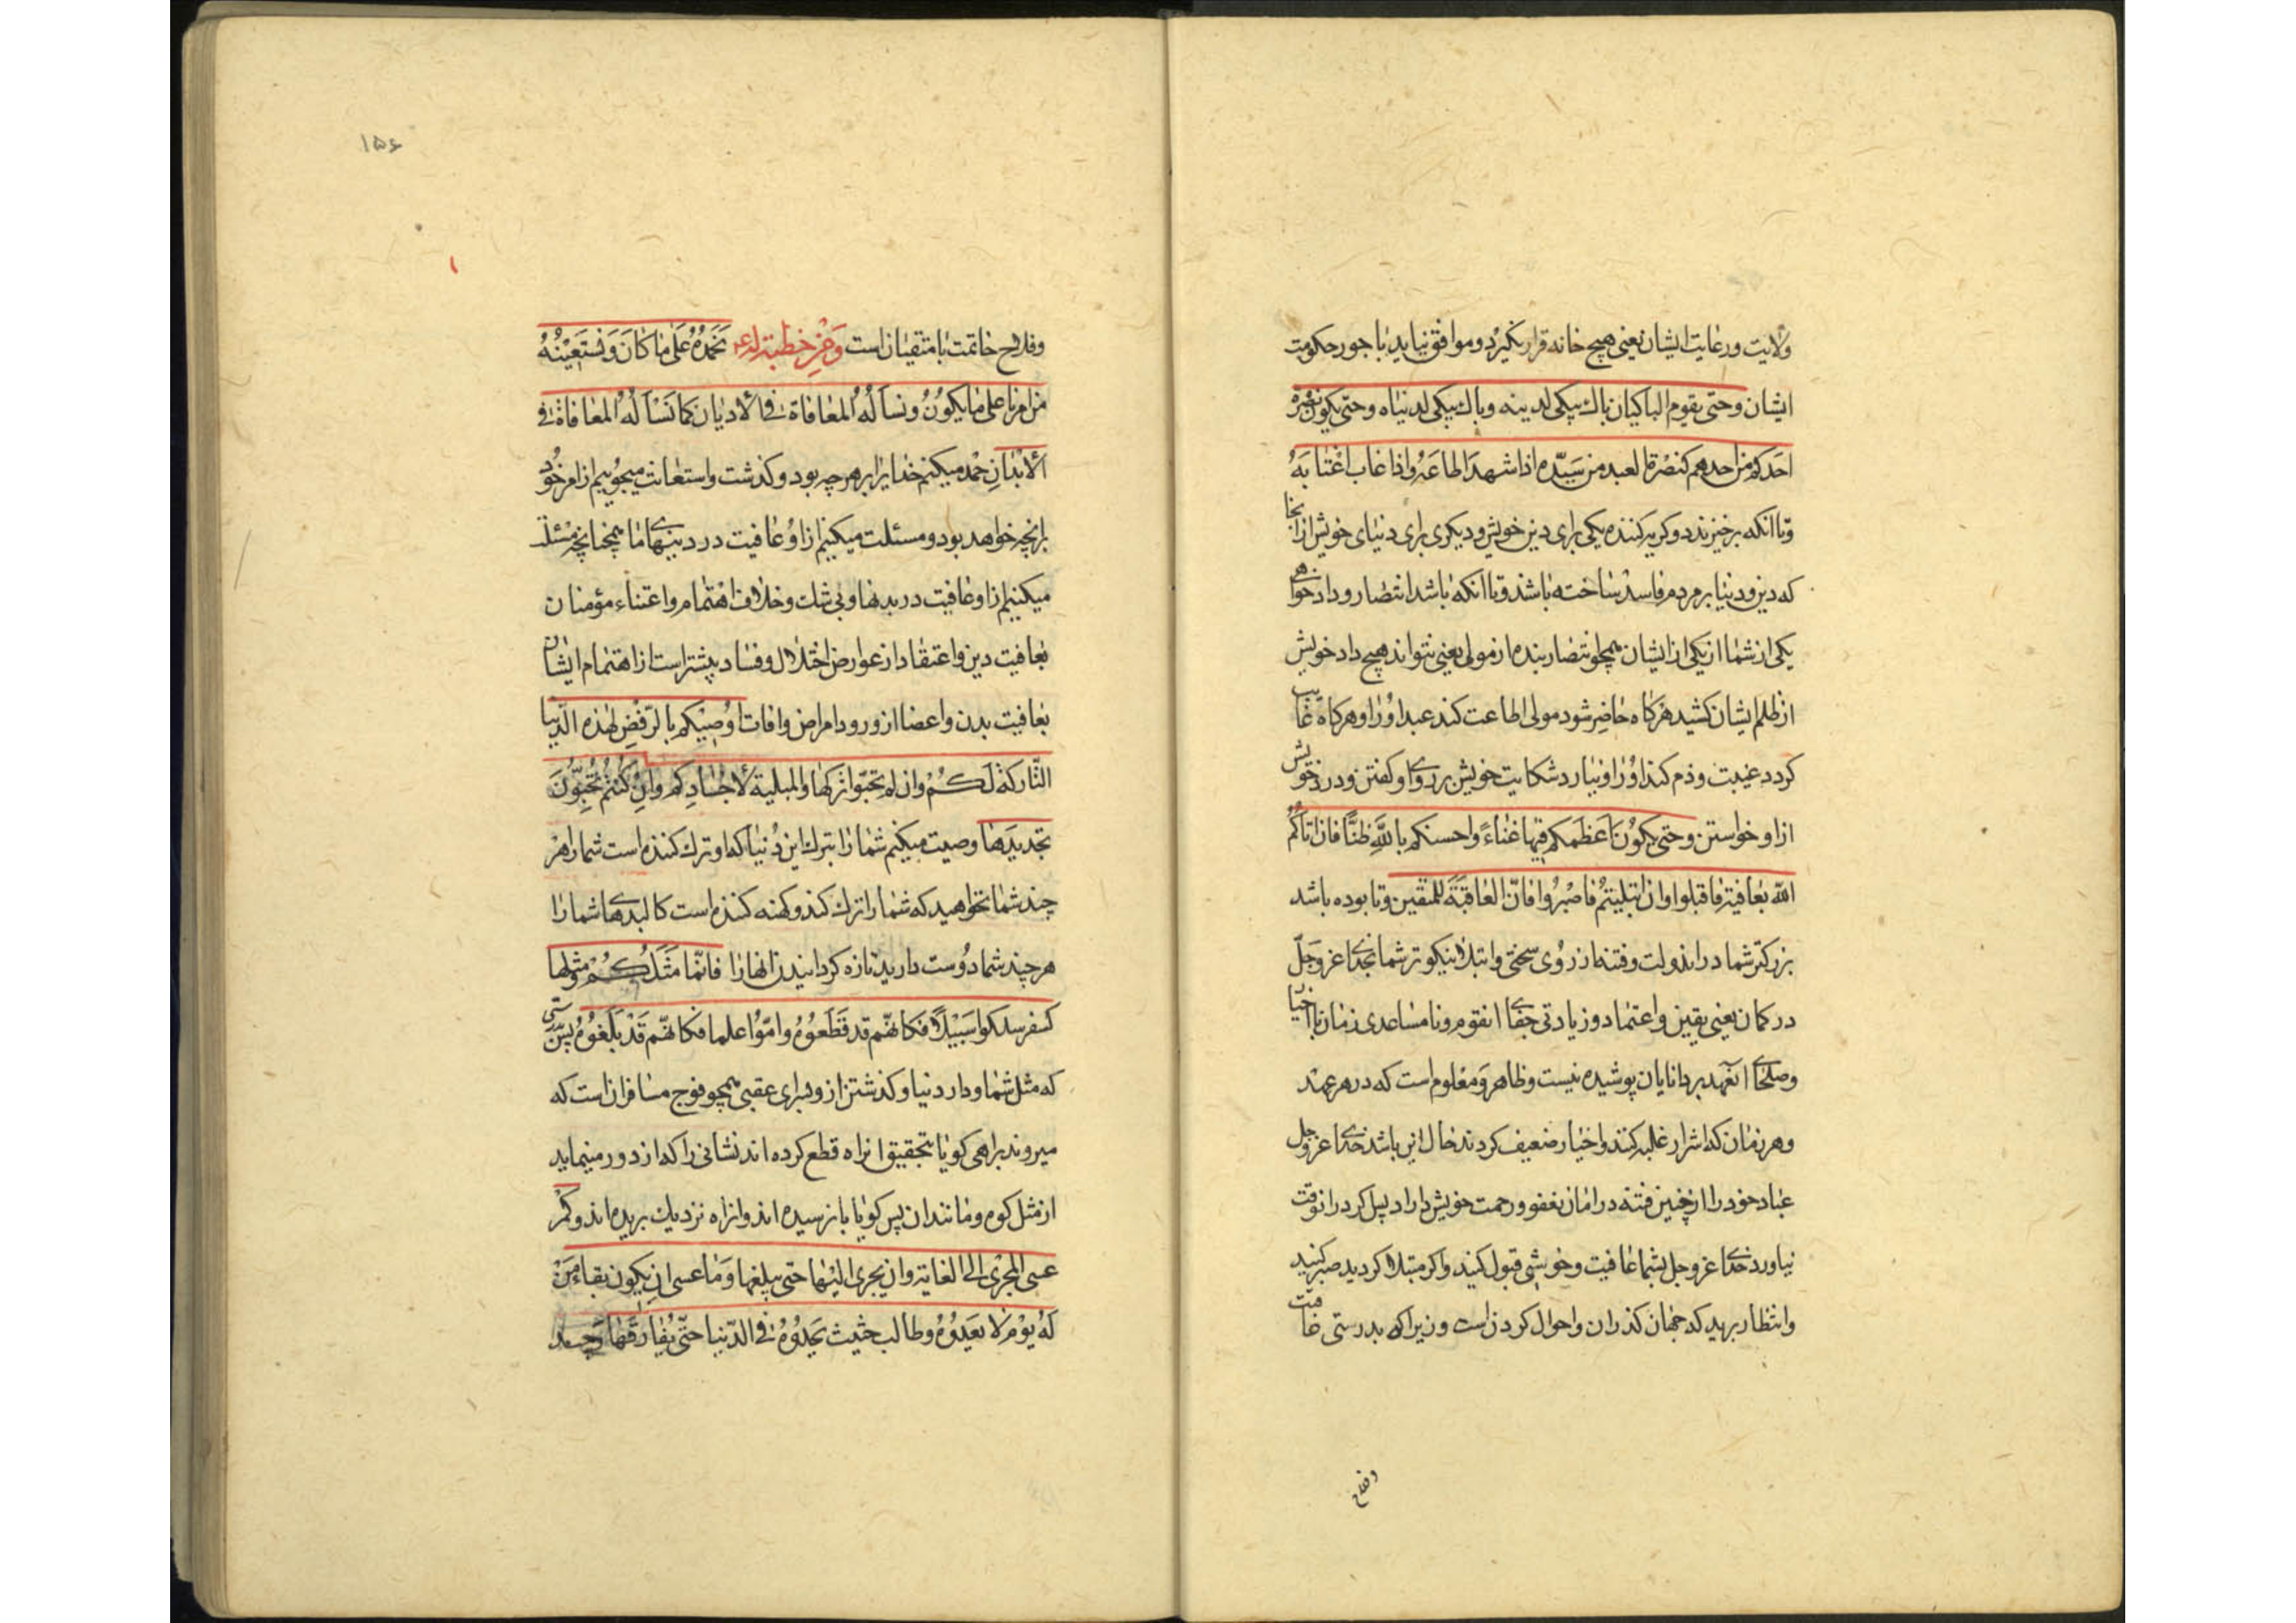 ولایت ورعایت ایشان یعنی هیچ خانه قرار نگیرد وموافق نیاید با جور حکومت
ایشان وحتی یقوم الباکیان باك یبکی لدینه وباك یبکی لدنیاه وحتی یکون نصرة
احدکم من احدهم کنصرة العبد من سیّده اذا شهد اطاعَهُ واذا غاب اغتابَهُ
وتا انکه برخیزند دو کریه کننده یکی برای دین خویش ودیکری برای دنیای خویش از انجا
که دین ودنیا بر مردم فاسد ساخته باشند وتا انکه باشد انتصار وداد خواهی
یکی از شما از یکی از ایشان همچو انتصار بنده از مولی یعنی نتواند هیچ داد خویش
از ظلم ایشان کشید هرکاه حاضر شود مولی اطاعت کند عبد اورا وهرکاه غایب
کردد غیبت وذم کند اورا ونیارد شکایت خویش بر روی او کفتن ودرد خویش
از او خواستن وحتی یکون اعظمکم فیها غناءً واحسنکم باللّه ظنًّا فان اتاکُمُ
اللّه بعافیة فاقبلوا وان ابتلیتم فاصبروا فانّ العاقبَةَ للمتقین وتا بوده باشد
بزرکتر شما در ان دولت وفتنه از روی سختی وابتلا نیکوتر شما بخدای عزوجلّ
در کمان یعنی یقین واعتماد وزیادتی جفای انقوم ونا مساعدی زمان با اخیار
وصلحای انعهد بر دانایان پوشیده نیست وظاهر ومعلوم است که در هر عهد
وهر زمان که اشرار غلبه کنند واخیار ضعیف کردند حال این باشد خدای عزوجل
عباد خود را از چنین فتنه در امان بعفو ورحمت خویش داراد پس کر در انوقت
نیاورد خدای عزوجل بشما عافیت وخوشی قبول کنید واکر مبتلا کردید صبر کنید
وانتظار برید که جهان کذران واحوال کردن است وزیرا که بدرستی خاتمت
وفلاح
۱۵۶
وفلاح خاتمت با متقیان است وَمِن خطبة له ع نَحمَدُهُ عَلی ما کانَ وَنَستَعینُهُ
من امرنا علی ما یکونُ ونسألُهُ المعافاة فی الادیان کما نَسْألُهُ المعافاة فی
الابدانِ حمد میکنم خدایرا بر هر چه بود وکذشت واستعانت میجوییم از امر خود
بر انچه خواهد بود ومسئلت میکنیم از او عافیت در دینهای ما همچنانچه مسئلت
میکنیم از او عافیت در بدنها وبی شك وخلاف اهتمام واعتناء مؤمنان
بعافیت دین واعتقاد از عوارض اختلال وفساد بیشتر است از اهتمام ایشان
بعافیت بدن واعضا از ورود امراض وافات اوُصیکم بالرّفضِ لهٰذه الدّنیا
التّارکة لَکُمْ وان لم تحبّوا ترکها والمبلیة لاجسادِکم وان کنتم تُحِبّونَ
تجدیدَها وصیت میکنم شما را بترك این دنیا که او ترك کننده است شما را هر
چند شما نخواهید که شما را ترك کند وکهنه کننده است کالبدهای شما را
هر چند شما دوست دارید تازه کردانیدن انها را فانّما مَثَلُکُمْ ومثلها
کسفر سلکوا سَبیلًا فکانّهم قد قَطَعوُهُ وامّوا علما فکانّهم قَدْ بَلَغوُهُ پس بدرستی
که مثل شما ودار دنیا وکذشتن از او برای عقبی همچو فوج مسافران است که
میروند براهی کویا بتحقیق انراه قطع کرده اند نشانی را که از دور مینماید
از مثل کوه ومانند ان پس کویا بان رسیده اند وان راه نزدیك بریده اند وکمْ
عسی المجری الی الغایة وان یجری الیها حتی یبلغها وَما عسی ان یکون بقاء مَنْ
لَهُ یوْم لا یعدوُهُ وطالب حثیث یحدوُهُ فی الدّنیا حتّی یُفارقَها